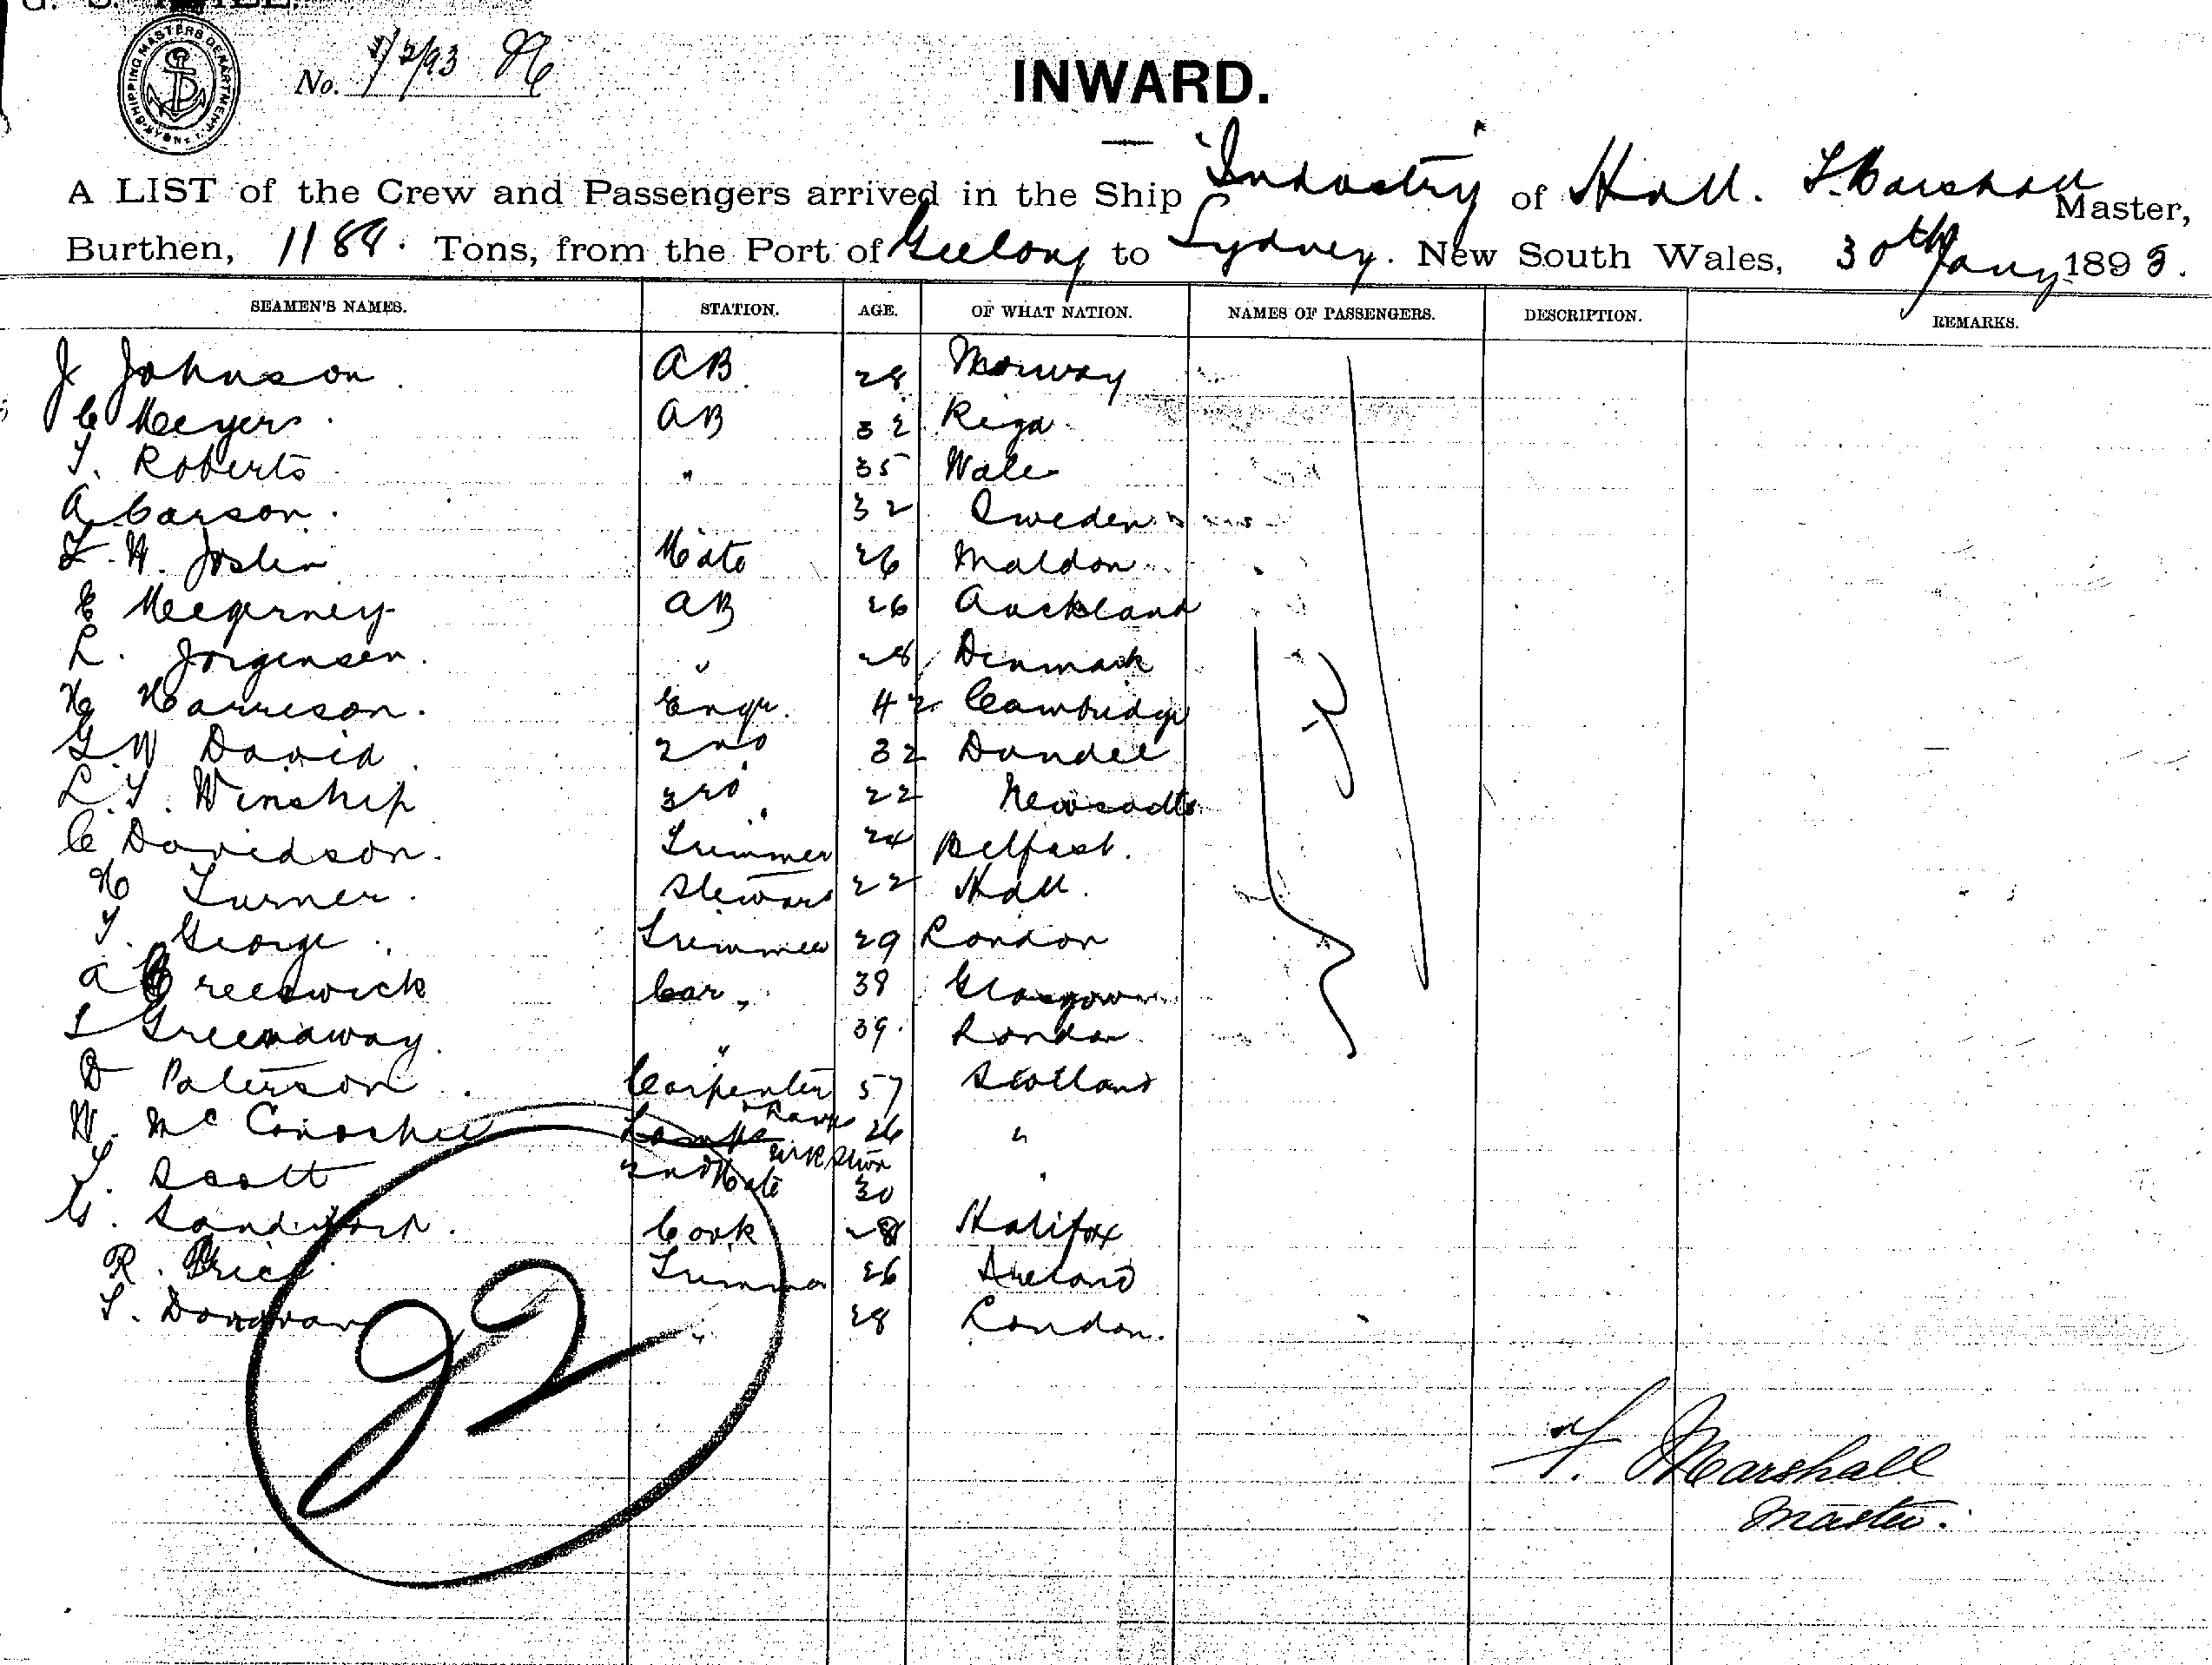 SHIPPING MASTERS DEPARTMENT SYDNEY
No. 1/2/93
INWARD.
A LIST of the Crew and Passengers arrived in the Ship "Industry" of Hull. T. Marshall Master,
Burthen, 1188. Tons, from the Port of Geelong to Sydney. New South Wales, 30th Jany 1893.
SEAMEN'S NAMES. STATION. AGE. OF WHAT NATION. NAMES OF PASSENGERS. DESCRIPTION. REMARKS.
J Johnson AB 28 Norway
C Meyers AB 32 Riga
T. Roberts " 35 Wales
A Carson. 32 Sweden
F. W. Joslin Mate 26 Maldon
E AB 26 Auckland
L. Jorgensen. " 28 Denmark
H Harrison. Engr. 42 Cambridge
G. W David 2nd 32 Dundee
L. T. Winship 3rd 22
C Davidson. Trimmer 24 Belfast.
H Turner. Steward 22 Hull.
T. George. Trimmer 29 London
A Creeswick Car " 38 Glasgow
Greenaway. " 39. London
D Paterson. Carpenter 57 Scotland
W. Mc Conochie Lamps 26 "
T. Scott 2nd Mate 30 "
Cook 28 Halifax
R. Price Trimmer 26 Ireland
T. Donovan " 28 London.
92
F. Marshall
Master.